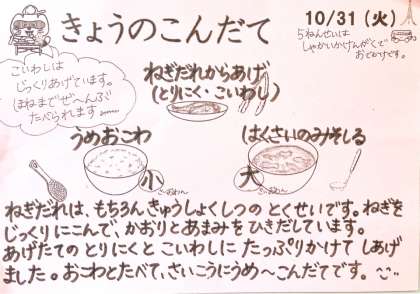 きょうのこんだて
10/31(火)
5ねんせいは
しゃかいかけんがくで
おでかけです。
こいわしは
じっくりあげています。
ほねまでぜ〜んぶ
たべられます
ねぎだれからあげ
(とりにく・こいわし)
うめおこわ
小
はくさいのみそしる
大
ねぎだれは、もちろんきゅうしょくしつの とくせいです。ねぎを
じっくりにこんで、かおりとあまみをひきだしています。
あげたての とりにくと こいわしに たっぷりかけて しあげ
ました。おこわとたべて、さいこうにうめ〜こんだてです。